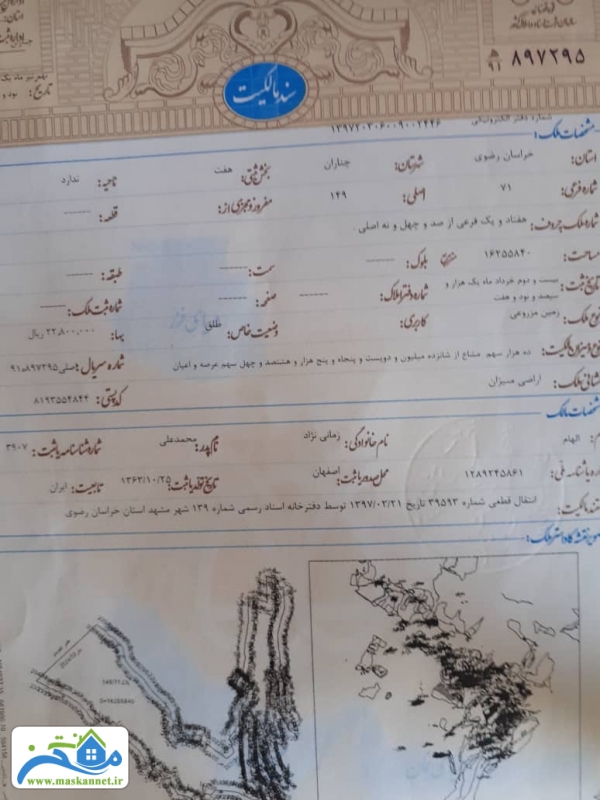 قوه قضائیه
سازمان ثبت اسناد و املاک کشور
استان:
اداره ثبت
تاریخ:
۸۹۷۲۹۵
۹۱
سند مالکیت
شماره دفتر الکترونیکی ۱۳۹۷۲۰۳۰۶۰۰۹۰۰۲۴۴۶
مشخصات ملک:
استان: خراسان رضوی شهرستان: چناران بخش ثبتی: هفت ناحیه: ندارد
شماره فرعی: ۷۱ اصلی: ۱۴۹ مفروز و مجزی از: ------ قطعه: ------
شماره ملک بحروف: هفتاد و یک فرعی از صد و چهل و نه اصلی .
مساحت: ۱۶۲۵۵۸۴۰ مترمربع بلوک: ------ سمت: ------ طبقه: ------
تاریخ ثبت: بیست و دوم خرداد ماه یک هزار و سیصد و نود و هفت شماره دفتر املاک: ------ صفحه: ------ شماره ثبت ملک: ------
نوع ملک: زمین مزروعی کاربری: وضعیت خاص: طلق بها: ۲۲,۸۰۰,۰۰۰ ریال
نوع و میزان مالکیت: ده هزار سهم مشاع از شانزده میلیون و دویست و پنجاه و پنج هزار و هشتصد و چهل سهم عرصه و اعیان شماره سریال: اصلی۸۹۷۲۹۵-۹۱
نشانی ملک: اراضی سیزان کد پستی: ۸۱۹۳۵۵۴۸۴۴
مشخصات مالک
نام: الهام نام خانوادگی: زمانی نژاد نام پدر: محمدعلی شماره شناسنامه یا ثبت: ۳۹۰۷
شماره یا شناسه ملی: ۱۲۸۹۲۴۵۸۶۱ محل صدور یا ثبت: اصفهان تاریخ تولد یا ثبت: ۱۳۶۳/۱۰/۲۵ تابعیت: ایران
سند مالکیت: انتقال قطعی شماره ۳۹۵۹۳ تاریخ ۱۳۹۷/۰۳/۲۱ توسط دفترخانه اسناد رسمی شماره ۱۳۹ شهر مشهد استان خراسان رضوی
تصویر نقشه کاداستر ملک:
مسکن نت
www.maskannet.ir